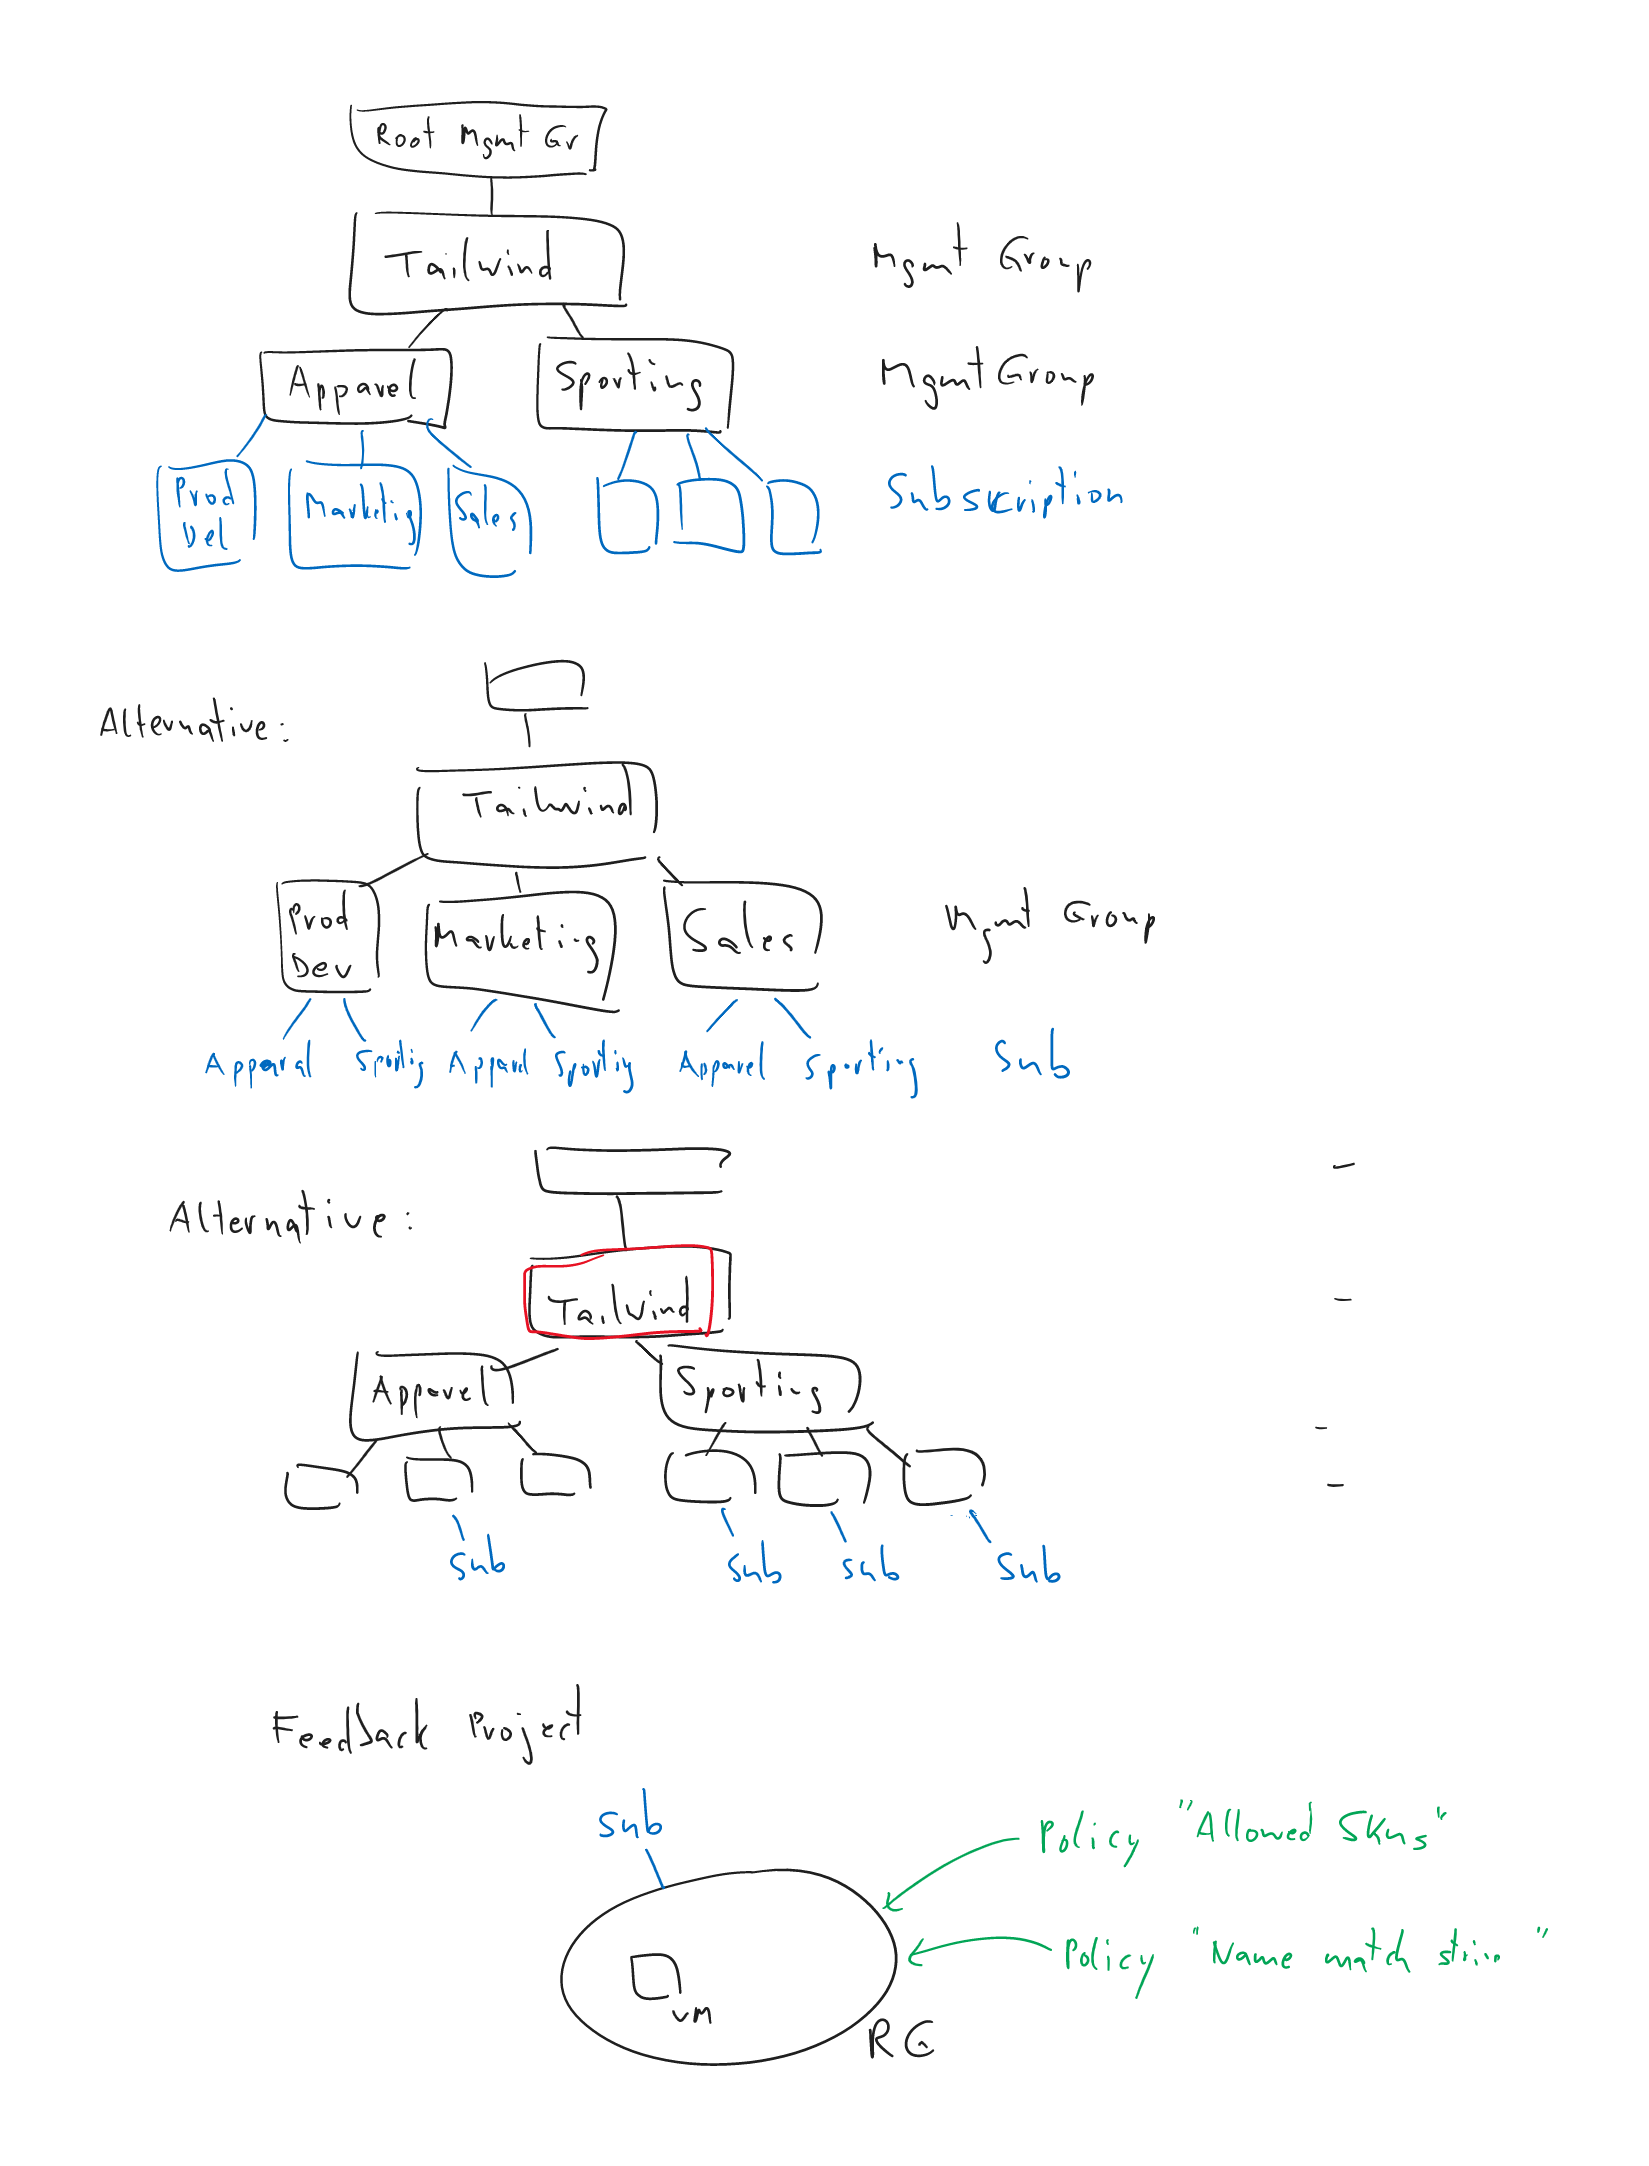 Root Mgmt Gr
Tailwind
Mgmt Group
Apparel
Sporting
Mgmt Group
Prod
Del
Marketig
Sales
Subscription
Alternative:
Tailwind
Prod
Dev
Marketing
Sales
Mgmt Group
Apparal Sportig Apparel Sportig Apparel Sporting Sub
Alternative:
Tailwind
Apparel
Sporting
Sub Sub Sub Sub
Feedback Project
Sub
Policy "Allowed SKUs"
Policy "Name match "
VM
RG